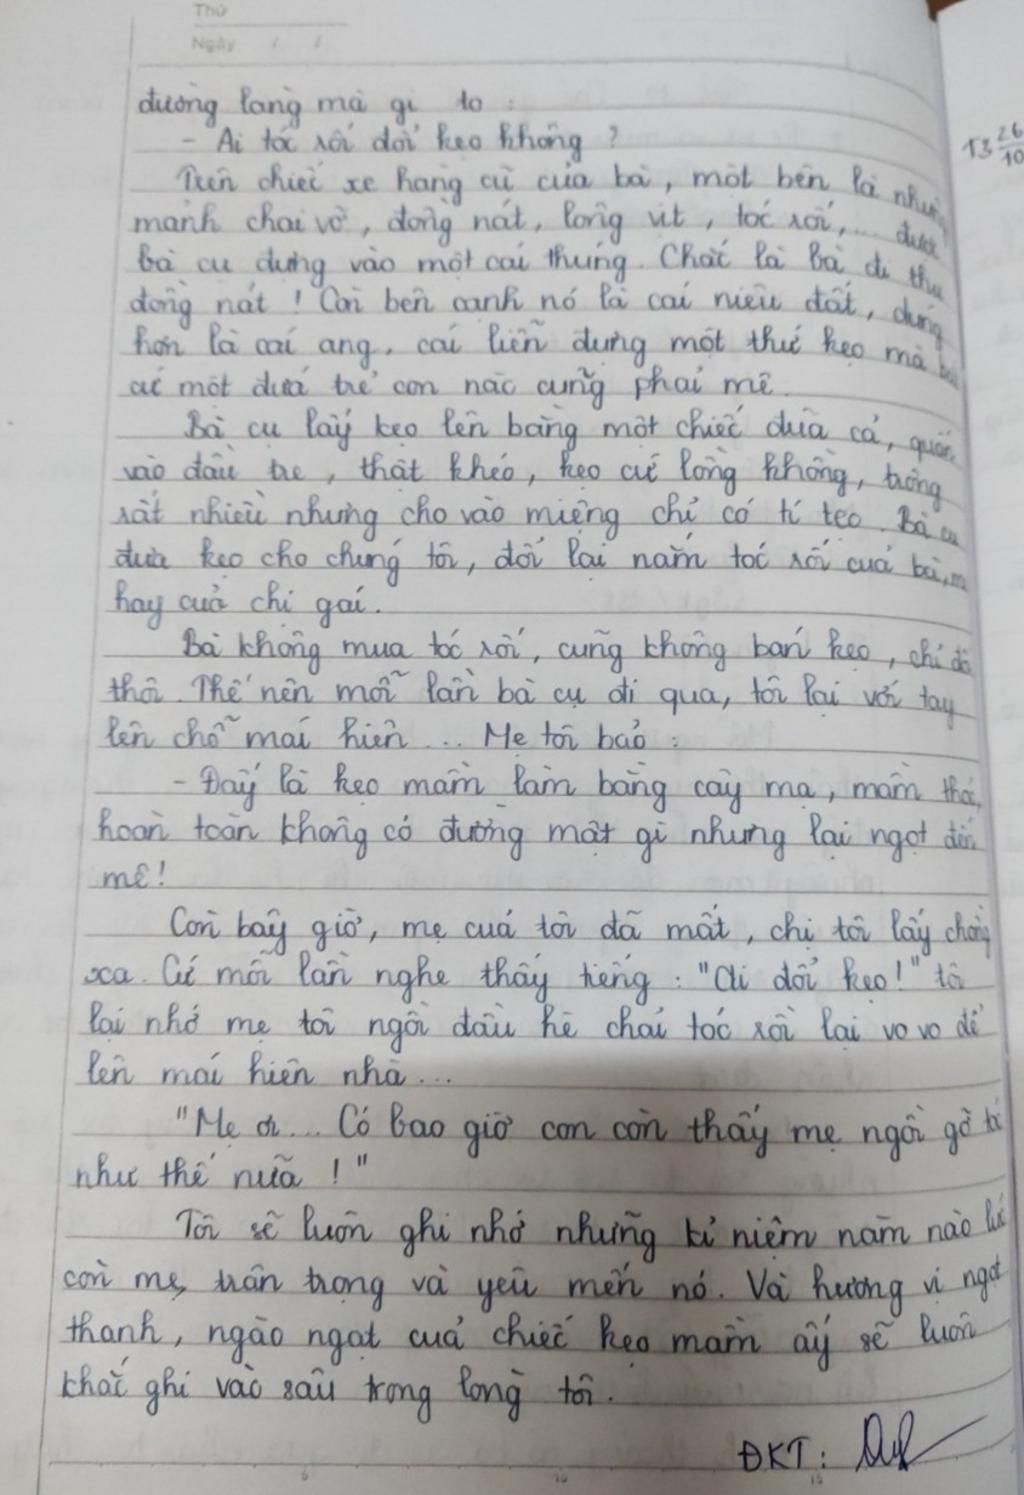 Thứ
Ngày / /
đường làng mà gọi to :
- Ai tóc rối đổi kẹo không ?
Trên chiếc xe hàng cũ của bà, một bên là những
mảnh chai vỡ, đồng nát, lông vịt, tóc rối,... được
bà cụ đựng vào một cái thúng. Chắc là bà đi thu
đồng nát ! Còn bên cạnh nó là cái niêu đất, đúng
hơn là cái ang, cái liễn đựng một thứ kẹo mà bất
cứ một đứa trẻ con nào cũng phải mê.
Bà cụ lấy kẹo lên bằng một chiếc đũa cả, quấn
vào đầu tre, thật khéo, kẹo cứ lồng khồng, trông
rất nhiều nhưng cho vào miệng chỉ có tí tẹo. Bà cụ
đưa kẹo cho chúng tôi, đổi lại nắm tóc rối của bà,
hay của chị gái.
Bà không mua tóc rối, cũng không bán kẹo, chỉ đổi
thôi. Thế nên mỗi lần bà cụ đi qua, tôi lại với tay
lên chỗ mái hiên ... Mẹ tôi bảo :
- Đấy là kẹo mầm làm bằng cây mạ, mầm thóc,
hoàn toàn không có đường mật gì nhưng lại ngọt đến
mê !
Còn bây giờ, mẹ của tôi đã mất, chị tôi lấy chồng
xa. Cứ mỗi lần nghe thấy tiếng : "Ai đổi kẹo !" tôi
lại nhớ mẹ tôi ngồi đầu hè chải tóc rồi lại vo vo để
lên mái hiên nhà ...
"Mẹ ơi ... Có bao giờ con còn thấy mẹ ngồi gỡ tóc
như thế nữa ! "
Tôi sẽ luôn ghi nhớ những kỉ niệm năm nào lúc
còn mẹ, trân trọng và yêu mến nó. Và hương vị ngọt
thanh, ngào ngạt của chiếc kẹo mầm ấy sẽ luôn
khắc ghi vào sâu trong lòng tôi.
ĐKT :
T3 26/10